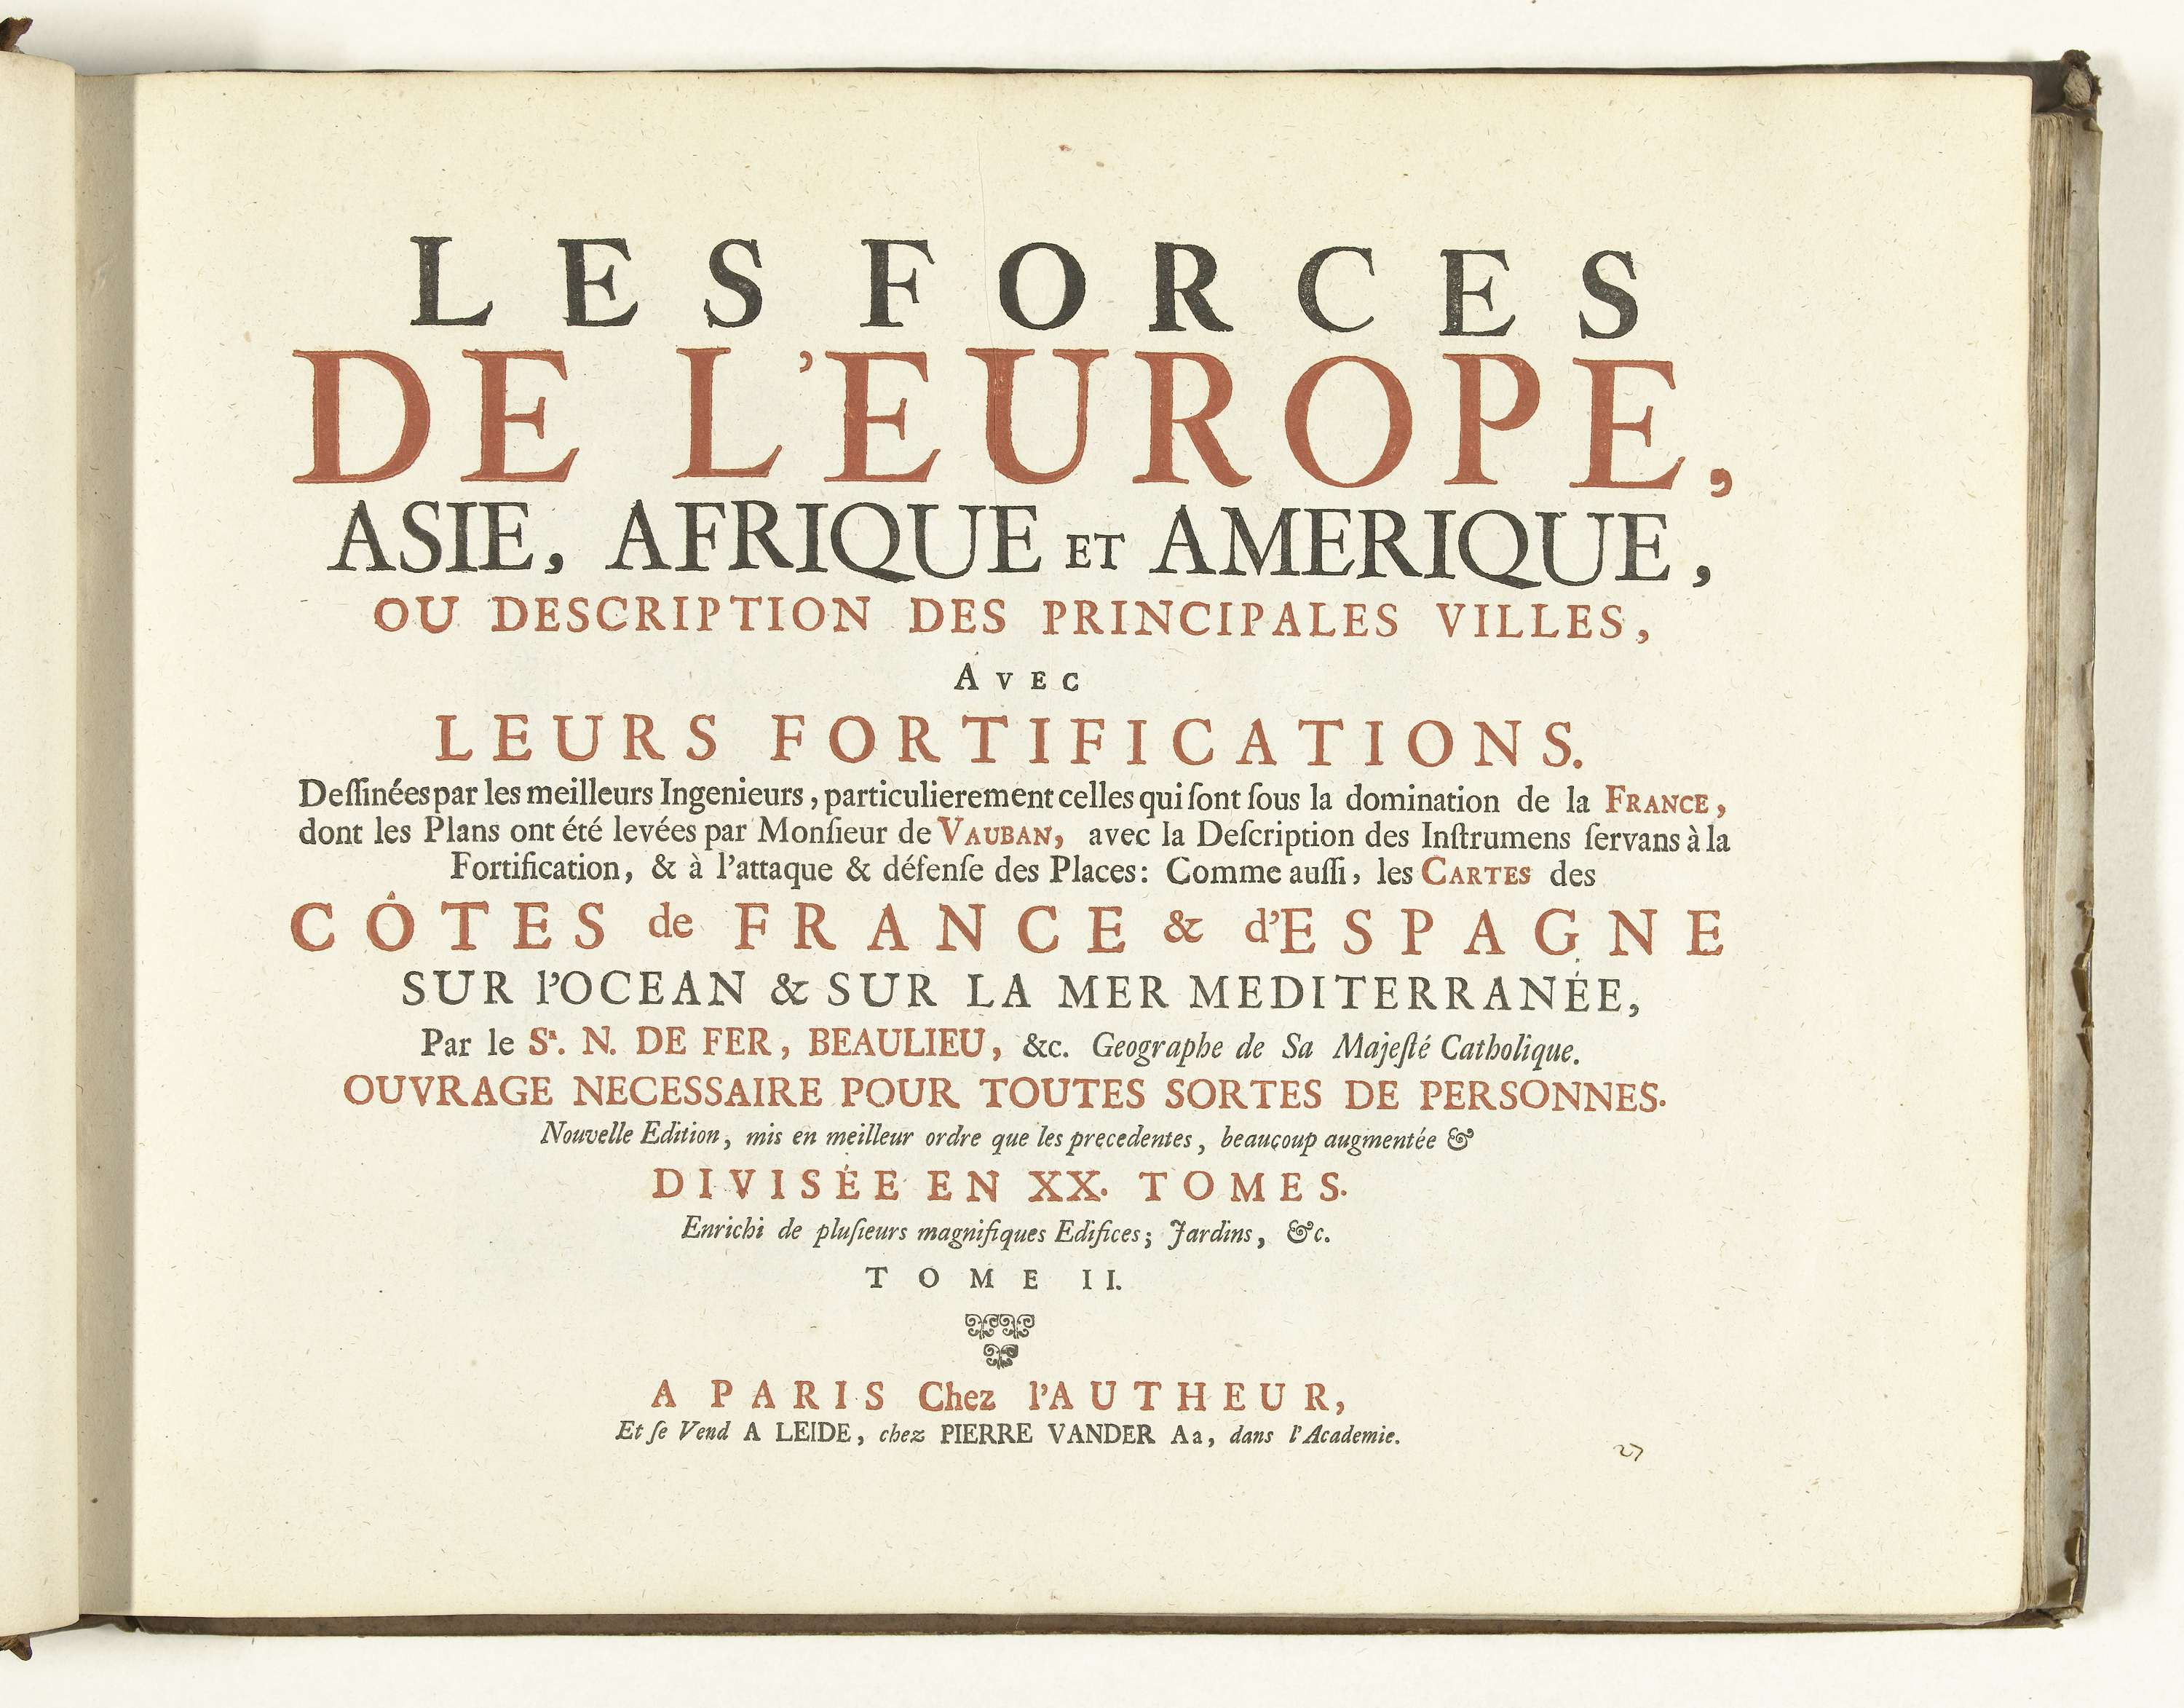 LES FORCES
DE L'EUROPE,
ASIE, AFRIQUE ET AMERIQUE,
OU DESCRIPTION DES PRINCIPALES VILLES,
AVEC
LEURS FORTIFICATIONS.
Deſſinées par les meilleurs Ingenieurs, particulierement celles qui ſont ſous la domination de la FRANCE,
dont les Plans ont été levées par Monſieur de VAUBAN, avec la Deſcription des Inſtrumens ſervans à la
Fortification, & à l'attaque & défenſe des Places: Comme auſſi, les CARTES des
CÔTES de FRANCE & d'ESPAGNE
SUR l'OCEAN & SUR LA MER MEDITERRANÉE,
Par le Sr. N. DE FER, BEAULIEU, &c. Geographe de Sa Majeſté Catholique.
OUVRAGE NECESSAIRE POUR TOUTES SORTES DE PERSONNES.
Nouvelle Edition, mis en meilleur ordre que les precedentes, beaucoup augmentée &
DIVISÉE EN XX. TOMES.
Enrichi de pluſieurs magnifiques Edifices; Jardins, &c.
TOME II.
A PARIS Chez l'AUTHEUR,
Et ſe Vend A LEIDE, chez PIERRE VANDER Aa, dans l'Academie.
27